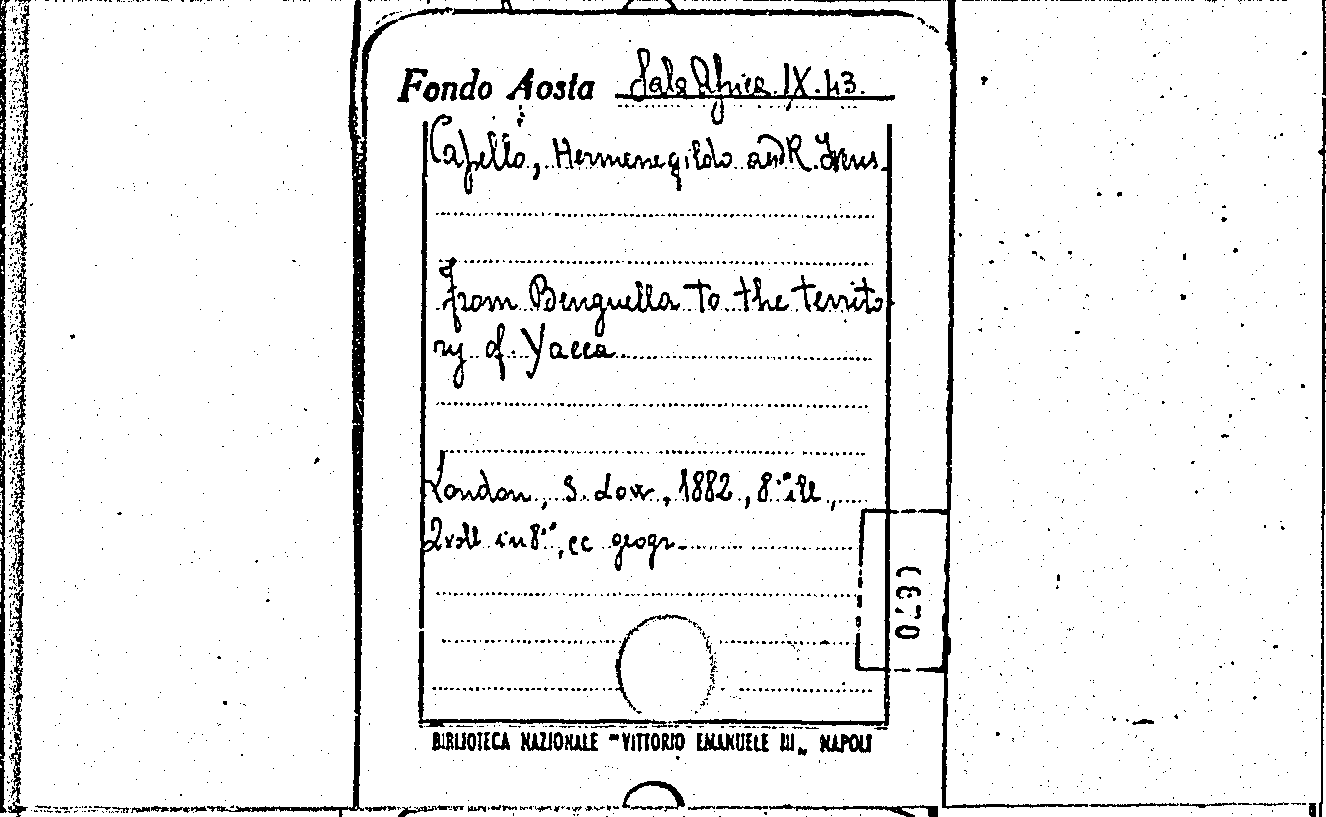 Fondo Aosta Sala Africa IX.43.
Capello, Hermenegildo and R. Ivens.
From Benguella to the territo
ry of Yacca.
London, S. Low, 1882, 8° ill,
2 voll in 8°, cc geogr.
BIBLIOTECA NAZIONALE "VITTORIO EMANUELE III„ NAPOLI